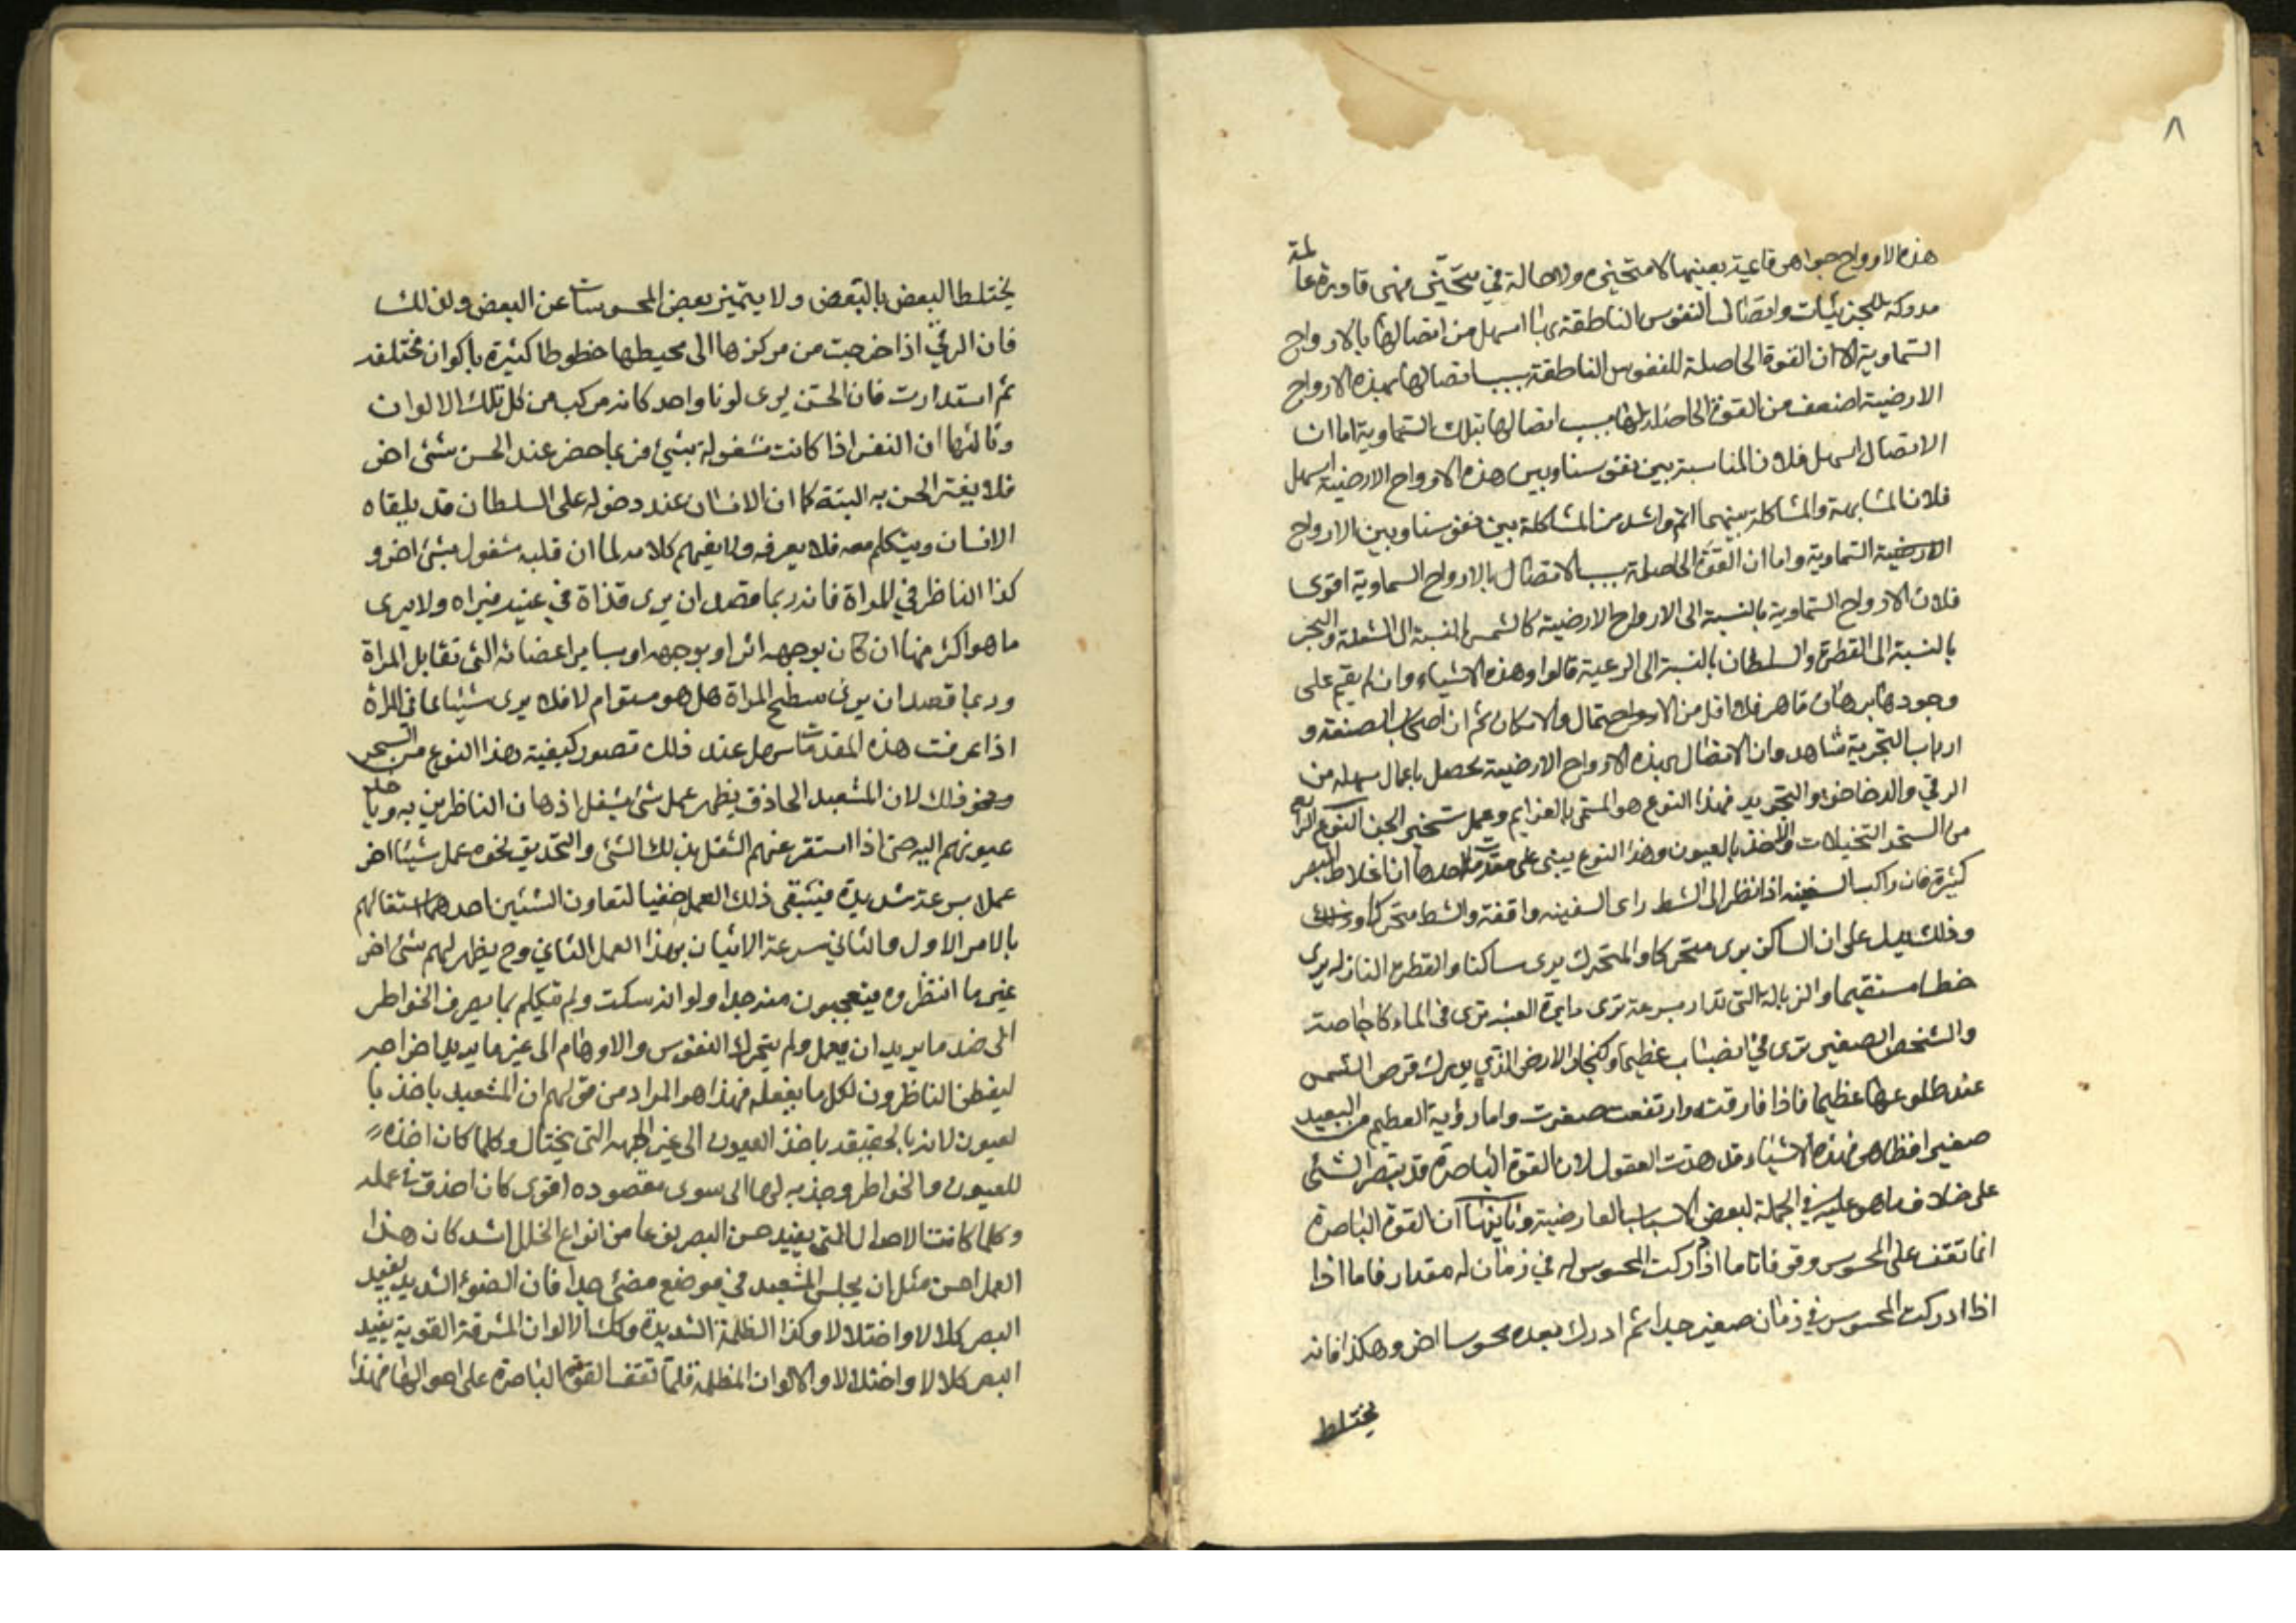 ٨
هذه الارواح جواهر قايمة بعينها لا متحيزه ولا حالة في متحيّز فهى قادرة عالمة
مدركة للجزيئات واتصال النفوس الناطقة بها اسهل من اتصالها بالارواح
السّماوية الا ان القوة الحاصلة للنفوس الناطقة بسبب اتصالها بهذه الارواح
الارضية اضعف من القوة الحاصلة لها بسبب اتصالها بتلك السّماوية اما ان
الاتصال اسهل فلان المناسبة بين نفوسنا وبين هذه الارواح الارضية اسهل
فلان المشابهة والمشاكلة بينهما اتم واشد من المشاكلة بين نفوسنا وبين الارواح
الارضية السّماوية واما ان القوّة الحاصلة بسبب الاتصال بالارواح السماوية اقوى
فلان الارواح السّماوية بالنسبة الى الارواح الارضية كالشمس بالنسبة الى الشعلة والبحر
بالنسبة الى القطرة والسلطان بالنسبة الى الرعية قالوا وهذه الاشياء وان لم يقم على
وجودها برهان قاهر فلا اقل من الاحتمال والامكان ثم ان اصحاب الصنعة و
ارباب التجربة شاهدوا ان الاتصال بهذه الارواح الارضية يحصل باعمال سهله من
الرقي والدخاخن والتجريد فهذا النوع هو المسمّى بالعزايم وعمل تسخير الجن النوع الرابع
من السحر التخيلات والاخذ بالعيون وهذا النوع يبنى على مقدمات احدها ان اغلاط البصر
كثيرة فان راكب السفينه اذا نظر الى الشط راى السفينه واقفة والشط متحركا وذلك
وذلك يدل على ان الساكن يرى متحركا والمتحرك يرى ساكنا والقطرة النازله يرى
خطا مستقيما والزبالة التى تدار بسرعة ترى دايرة العنبه ترى في الماء كاجاصة
والشخص الصغير ترى في الضباب عظيما وكبخار الارض الذي يريك قرص الشمس
عند طلوعها عظيما فاذا فارقته وارتفعت صغرت واما رؤية العظيم من البعيد
صغيرا فظاهر فهذه الاشياء قد هدت العقول لان القوة الباصرة قد تبصر الشئ
على خلاف ما هو عليه في الجملة لبعض الاسباب العارضية وثانيها ان القوة الباصرة
انما تقف على المحسوس وقوفا تاما اذا ادركت المحسوس له في زمان له مقدار فاما اذا
اذا ادركت المحسوس في زمان صغير جدا ثم ادرك بعده محوسا اخر وهكذا فانه
يختلط
يختلط البعض بالبعض ولا يتميز بعض المحسوسات عن البعض ولذلك
فان الرحى اذا خرجت من مركزها الى محيطها خطوطا كثيرة بالوان مختلفه
ثم استدارت فان الحس يرى لونا واحد كانه مركب من كل تلك الالوان
وثالثها ان النفس اذا كانت مشغولة بشئ فربما حضر عند الحس شئ اخر
فلا يشعر الحس به البتة كما ان الانسان عند دخوله على السلطان قد يلقاه
الانسان ويتكلم معه فلا يعرفه ولا يفهم كلامه لما ان قلبه مشغول بشئ اخر و
كذا الناظر في المراة فانه ربما قصد ان يرى قذاة في عينه فيراه ولا يرى
ما هو اكثر منها ان كان بوجهه اثر او بوجهه او بساير اعضائه التي تقابل المراة
وربما قصد ان يرى سطح المراة هل هو مستو ام لا فلا يرى شيئا مما في المراة
اذا عرفت هذه المقدمات سهل عند ذلك تصور كيفية هذا النوع من السحر
ونحو ذلك لان المشعبد الحاذق يظهر عمل شئ يشغل اذهان الناظرين به وياخذ
عيونهم اليه حتى اذا استقر عنهم الشغل بذلك الشئ والتحديق نحوه عمل شيئا اخر
عملا بسرعة شديدة فيبقى ذلك العمل خفيا لتعاون الشيئين احدهما اشتغالهم
بالامر الاول والثاني سرعة الاتيان بهذا العمل الثاني وح يظهر لهم شئ اخر
غير ما انتظروه فيتعجبون منه جدا ولو انه سكت ولم يتكلم بما يصرف الخواطر
الى ضد ما يريد ان يعمل ولم يتحرك النفوس والاوهام الى غير ما يريد اخراجه
ليفطن الناظرون لكل ما يفعله فهذا هو المراد من قولهم ان المشعبد ياخذ با
لعيون لانه بالحقيقه ياخذ العيون الى غير الجهه التى يحتال وكلما كان اخذه
للعيون والخواطر وجذبه لها الى سوى مقصوده اقوى كان احذق في عمله
وكلما كانت الاحوال التى يفيد حس البصر نوعا من انواع الخلل اشد كان هذا
العمل احسن مثل ان يجلس المشعبد في موضع مضئ جدا فان الضوء الشديد يفيد
البصر كلالا واختلالا وكذا الظلمة الشديدة وكذلك الالوان المشرقة القوية يفيد
البصر كلالا واختلالا والالوان المظلمة قلما تقف القوة الباصرة على احوالها فهذا